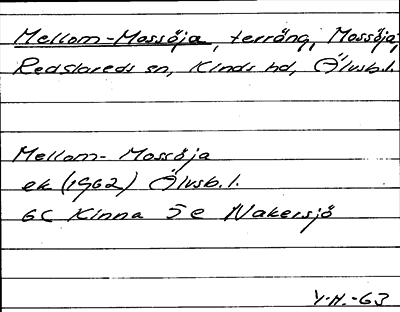 Mellom-Mossöja, terräng, Mossöja,
Redslareds sn, Kinds hd, Älvsb.l.
Mellom- Mossöja
ek (1962) Älvsb.l.
6C Kinna 5e Nakersjö
Y.H.-63